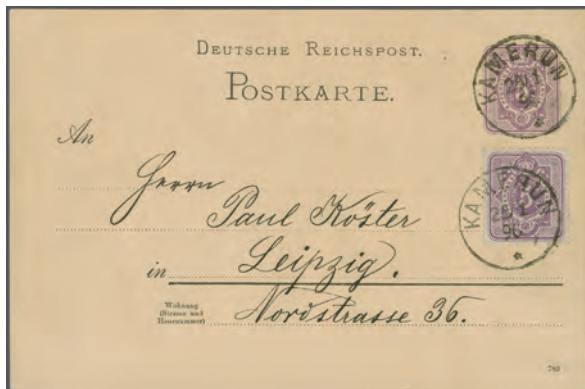 DEUTSCHE REICHSPOST.
POSTKARTE.
KAMERUN
KAMERUN
An
Herrn
Paul Köster
in Leipzig.
Wohnung
(Strasse und
Hausnummer)
Nordstrasse 36.